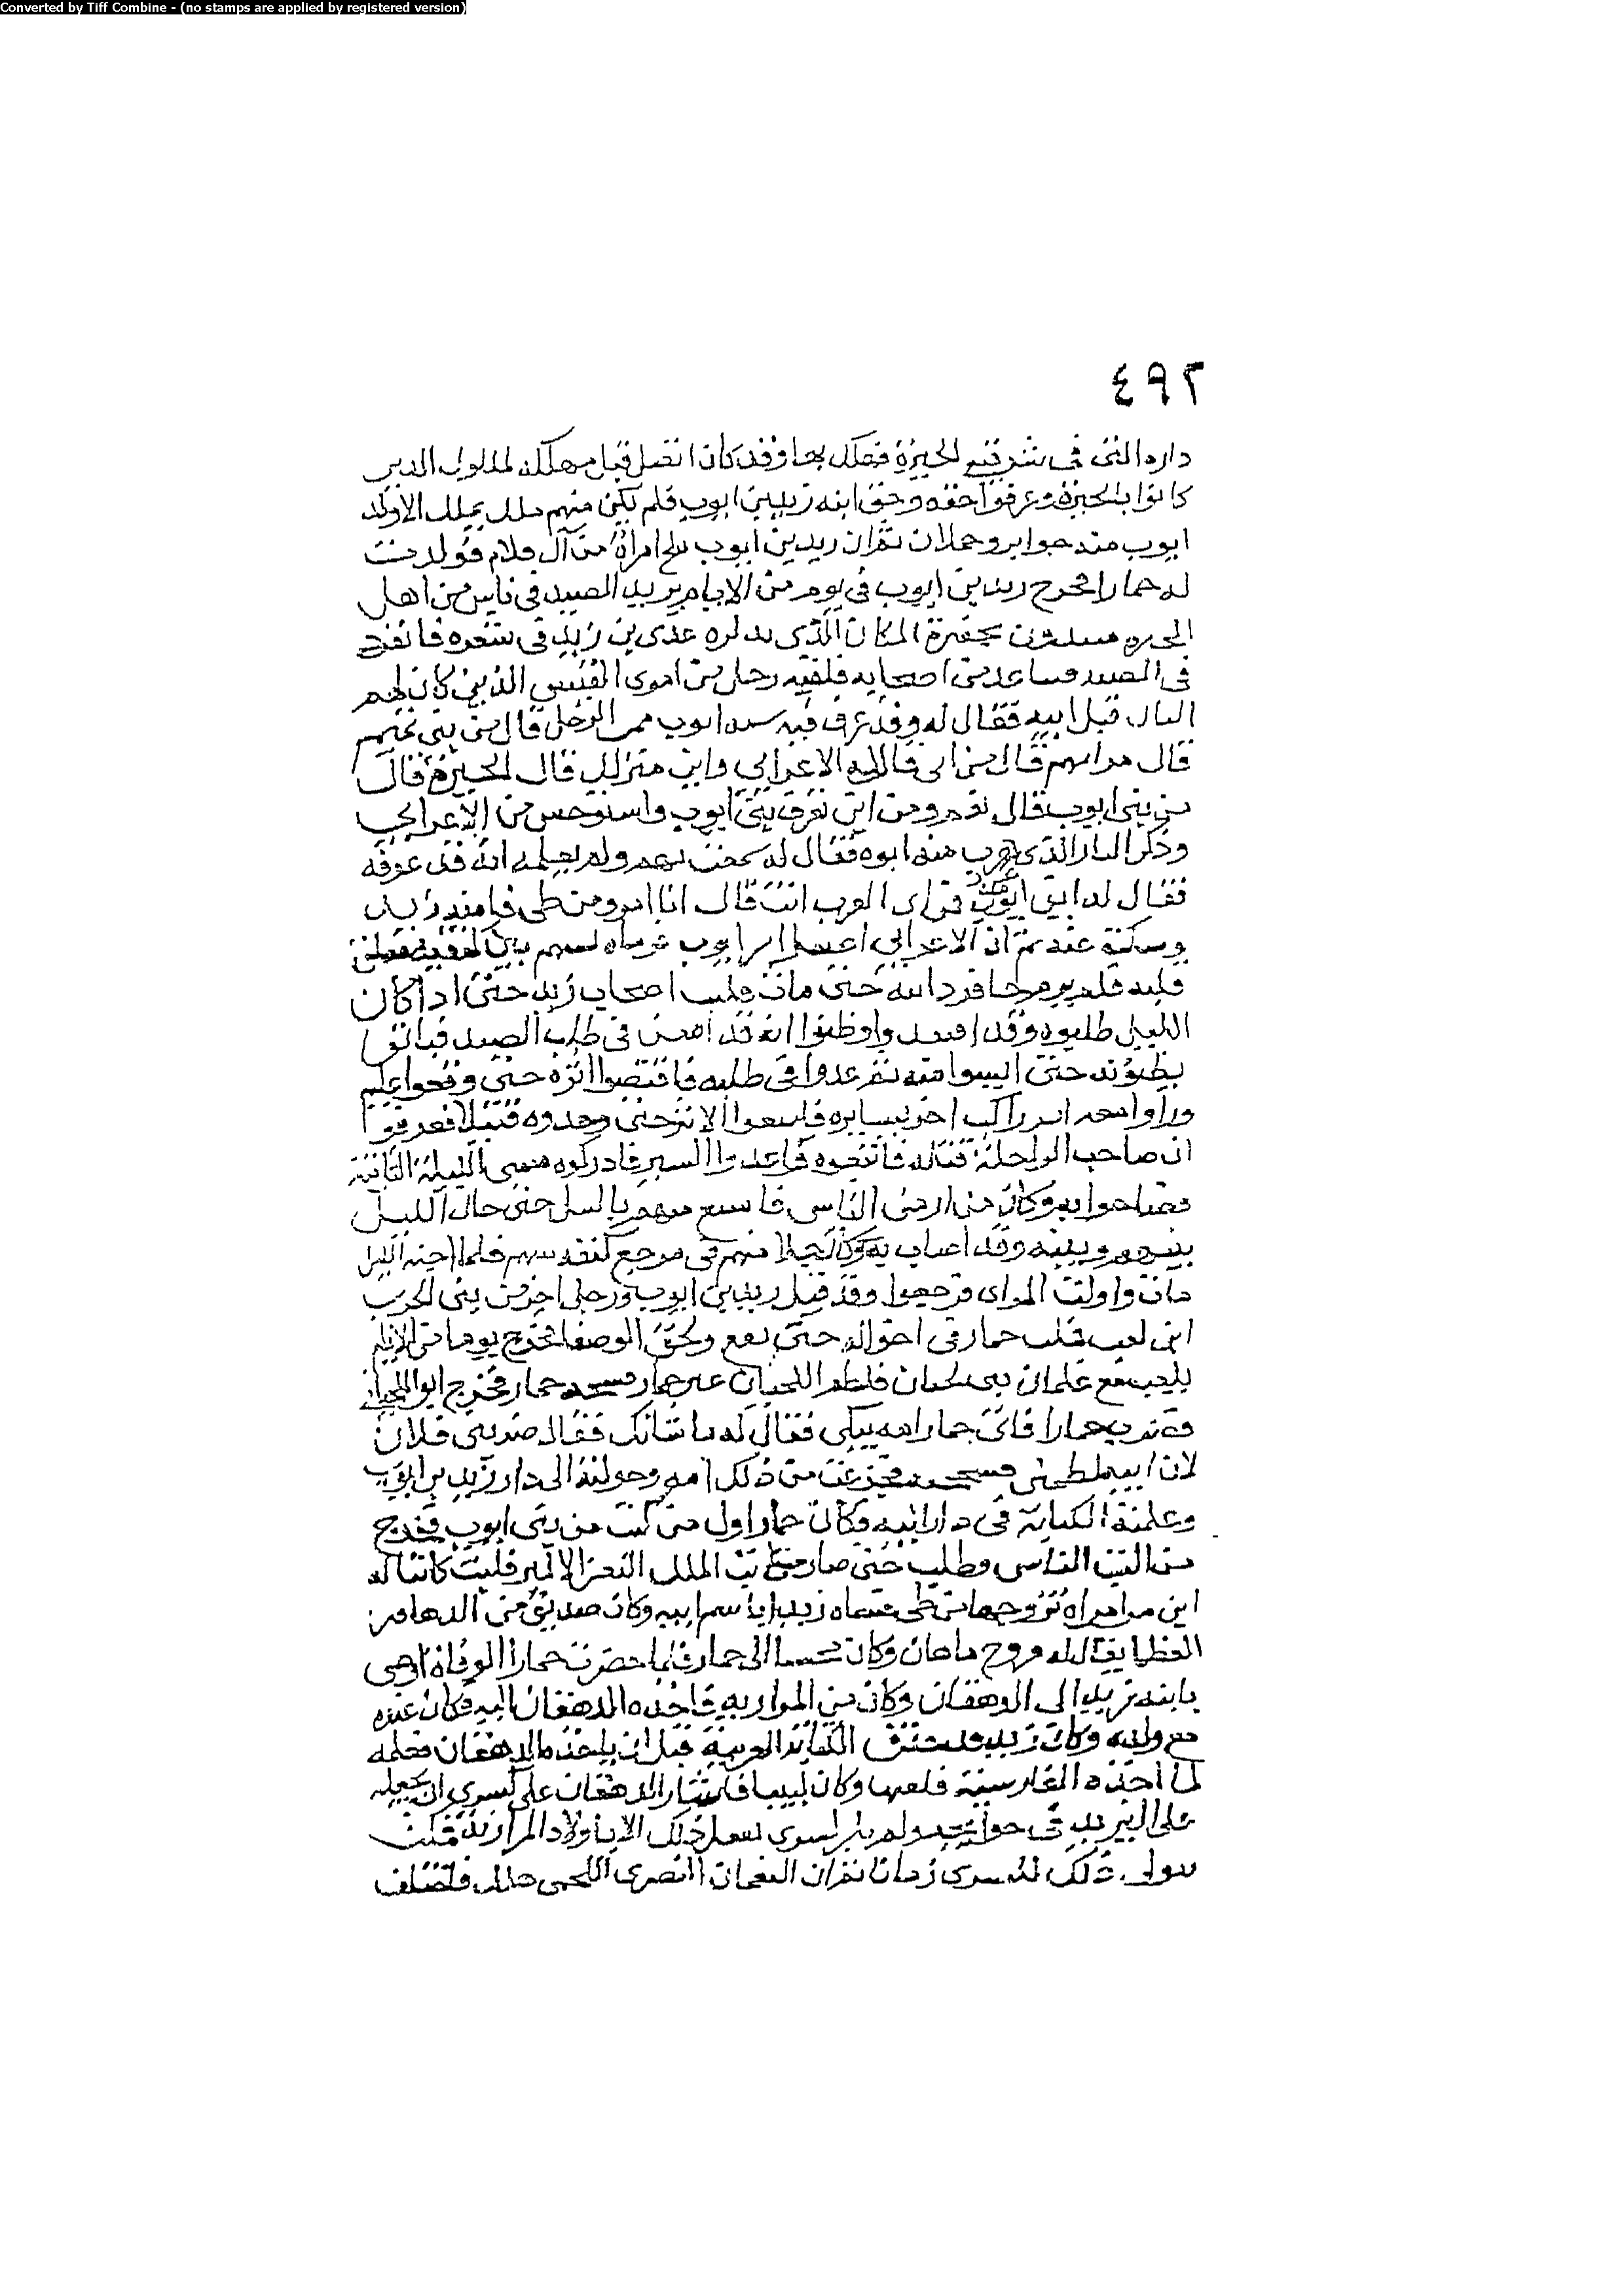 Converted by Tiff Combine - (no stamps are applied by registered version)
٤٩٢
داره التى فى شرقى الحيزة فهلك بها وقد كان اتصل قبل مهلكه لملوك الذين
كانوا بالحيزة وعرفوا حقه وحق ابنه زيد بن ايوب فلم يكن منهم ملك يملك الا ولد
ايوب منه جوايز وحملان ثم ان زيد بن ايوب نكح امراة من آل قلام فولدت
له حمارا فخرج زيد بن ايوب فى يوم من الايام يريد الصيد فى ناس من اهل
الحيره المكان الذى عدى بن زيد فى شعره فانفرد
فى الصيد من اصحابه فلقيه رجل من امرى القيس الذين كان لهم
الثار قبل ابيه فقال له وقد عرف فيه ايوب ممن الرجل قال من بنى تميم
قال من ايهم قال قال له الاعرابي واين منزلك قال الحيزة قال
من بنى ايوب قال نعم ومن اين تعرف بنى ايوب واستوحس من الاعرابى
وذكر الثار الذى هرب منه ابوه فقال له سمعت بهم ولم يعلمه انه قد عرفه
فقال له ابن ايوب فمن اى العرب انت قال انا امرو من طى فامنه زيد
وسكت عنه ثم ان الاعرابي ابن ايوب بسهم بين
قلبه فلم يرم حافر دابته حتى مات اصحاب زيد حتى اذا كان
الليل طلبوه وقد وظنوا انه قد امعن فى طلب الصيد فباتوا
يطلبونه حتى ايسوا منه ثم غدوا فى طلبه فاقتصوا اثره حتى وقعوا عليه
وراوا معه اثر راكب اخر يسايره فاتبعوا الاثر حتى وجدوه قتيلا فعرفوا
ان صاحب الراحلة قتله فاتبعوه السير فادركوه مسى الليلة الثانية
فصاحوا به وكان من ارمى الناس فامتنع منهم بالنبل حتى حال الليل
بينهم وبينه وقد اصاب رجلا منهم فى مرجع كتفه بسهم فلما اجنه الليل
مات الرامى فرجعوا وقد قتل زيد بن ايوب ورجل اخر من بنى الحرب
ابن كعب فمكث حمار فى اخواله حتى ايفع ولحق الوصفا فخرج يوما من الايام
يلعب مع غلمان بنى لحيان فلطم اللحيان عين حمار فشجه حمار فخرج ابو اللحيان
فضرب حمارا فاتى حمار امه يبكى فقال له ما شانك فقال ضربنى فلان
لان ابنه لطمنى فشججته فجزعت من ذلك امه وحولته الى دار زيد بن ايوب
وعلمته الكتابة فى دار ابيه وكان حمار اول من كتب من بنى ايوب فخرج
من اكتب الناس وطلب حتى صار كاتب الملك النعمن الاكبر فلبث كاتبا له
ابن من امراه تزوجها من طى فسماه زيدا باسم ابيه وكان صديق من الدهاقين
العظما يقال له فروخ ماهان وكان محسنا الى حمار فلما حضرت حمارا الوفاة اوصى
بابنه زيد الى الدهقان وكان من المرازبه فاخذه الدهقان اليه فكان عنده
مع ولده وكان زيد قد حذق الكتابة العربية قبل ان ياخذه الدهقان فعلمه
لما اخذه الفارسية فلقنها وكان لبيبا فاشار الدهقان على كسرى ان يجعله
على البريد فى حوائجه ولم يكن كسرى يفعل ذلك الا باولاد المرازبة فمكث
يتولى ذلك لكسرى زمانا ثم ان النعمان النصرى اللخمى هلك فاختلف